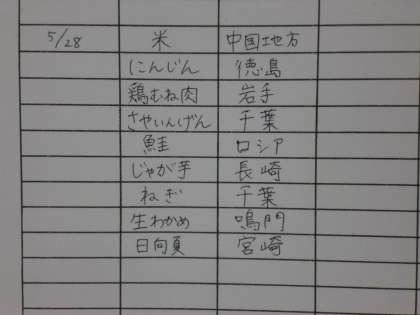 5/28 米 中国地方
にんじん 徳島
鶏むね肉 岩手
さやいんげん 千葉
鮭 ロシア
じゃが芋 長崎
ねぎ 千葉
生わかめ 鳴門
日向夏 宮崎